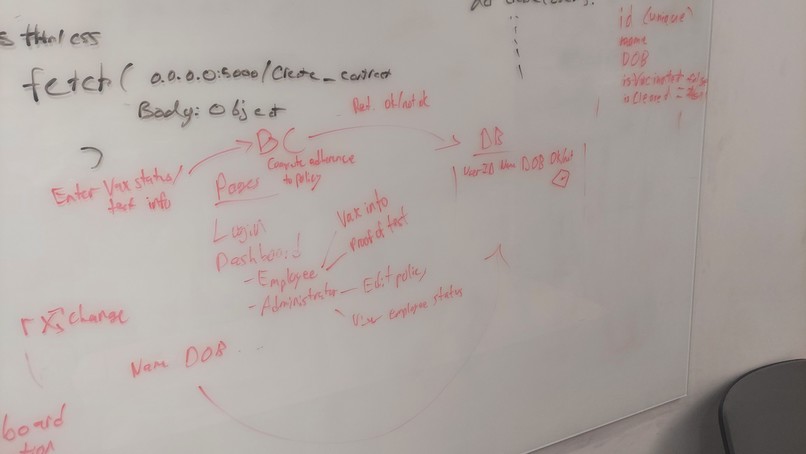 html css
fetch( 0.0.0.0:5000/Create_contract
Body: Object
)
id (unique)
name
DOB
isVaccinated
isCleared =
BC
ok/not ok
DB
Compute adherence
to policy
User ID Name DOB Ok/not
Enter Vax status/
test info
Pages
Login
Dashboard
- Employee
Vax info
Proof of test
- Administrator - Edit policy
View employee status
change
Name DOB ...
board